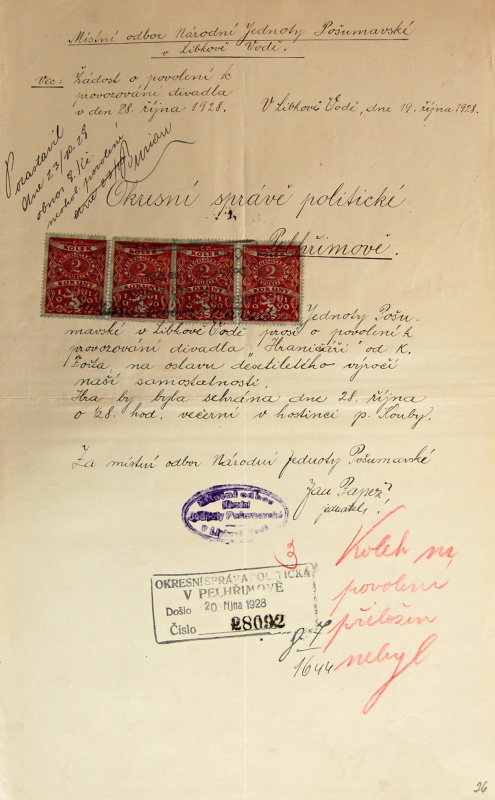 Místní odbor Národní Jednoty Pošumavské
v Libkově Vodě.
Věc: Žádost o povolení k
provozování divadla
v den 28. října 1928.
V Libkově Vodě, dne 19. října 1928.
dne 23/10 28
obnos 8 Kč
povolení
Burian
Okresní správě politické
v
Pelhřimově.
KOLEK
2
KORUNY
KOLEK
2
KORUNY
KOLEK
2
KORUNY
KOLEK
2
KORUNY
Jednoty Pošu-
mavské v Libkově Vodě prosí o povolení k
provozování divadla "Hraničáři" od K.
na oslavu desetiletého výročí
naší samostatnosti.
Hra by byla sehrána dne 28. října
o 28. hod. večerní v hostinci p. Kouby.
Za místní odbor Národní Jednoty Pošumavské
Jan
jednatel.
Místní odbor
Národní
Jednoty Pošumavské
v Libkově Vodě
Kolek na
povolení
přiložen
nebyl
OKRESNÍ SPRÁVA POLITICKÁ
V PELHŘIMOVĚ
Došlo 20. října 1928
Číslo 28092
1644
26